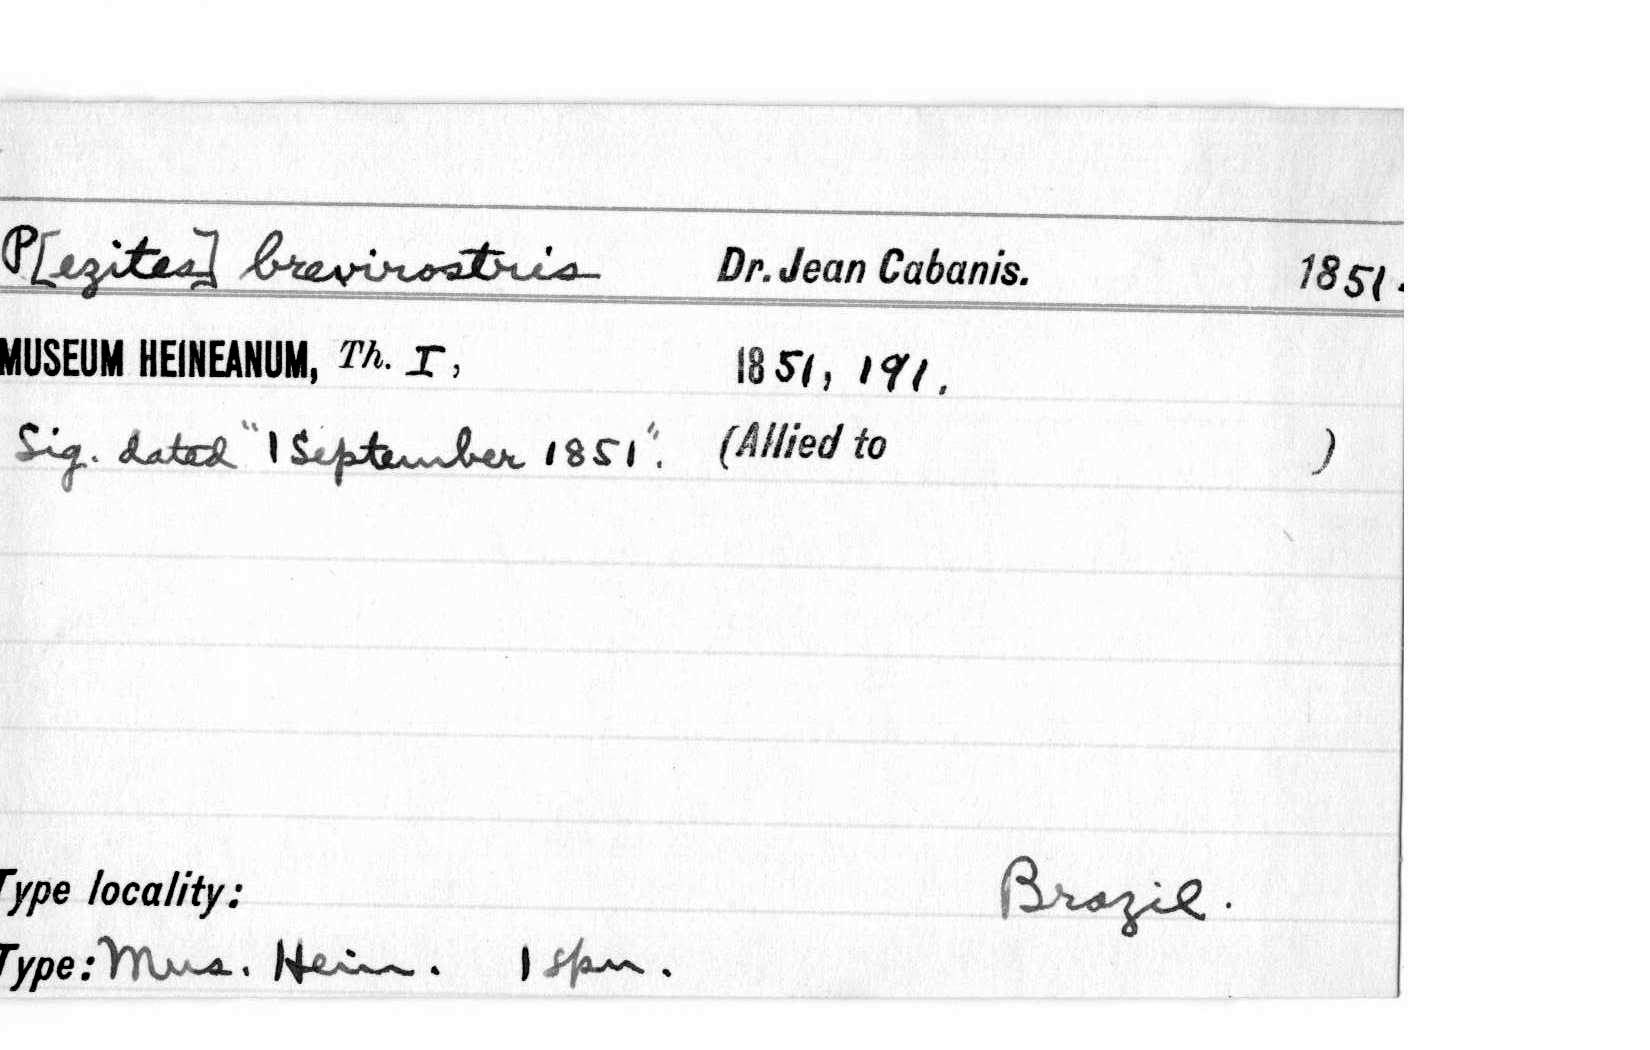 P[ezites] brevirostris Dr. Jean Cabanis. 1851.
MUSEUM HEINEANUM, Th. I, 1851, 191.
Sig. dated "1 September 1851". (Allied to )
Type locality: Brazil.
Type: Mus. Hein. 1 spn.